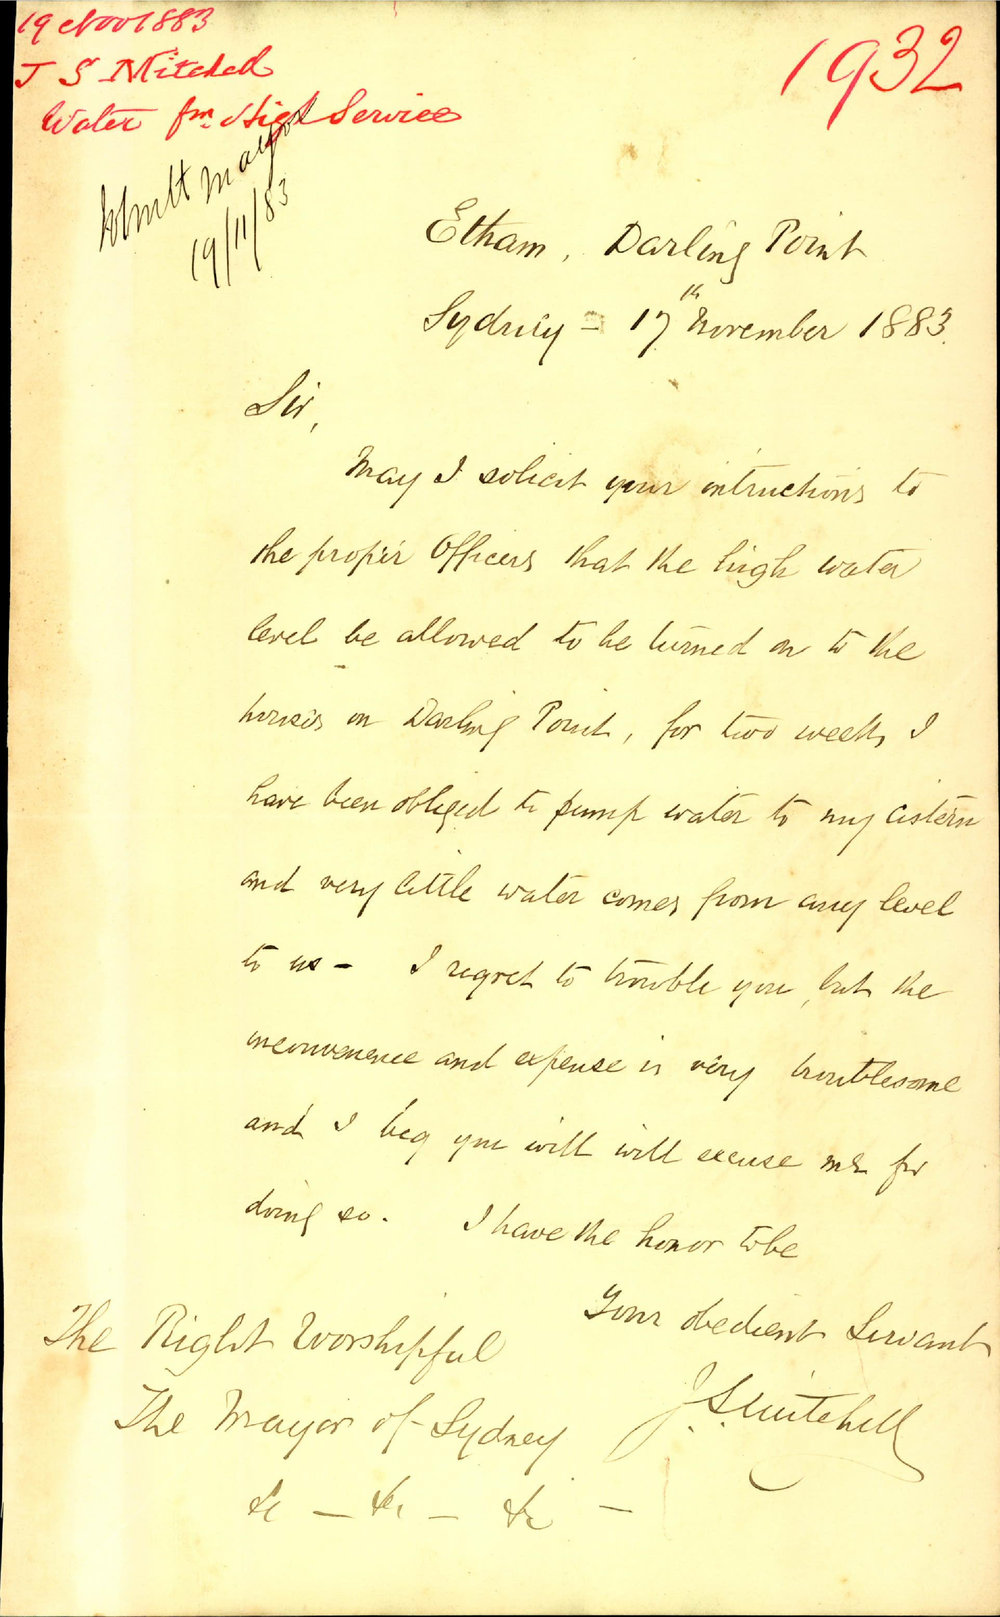 19 Nov 1883
J S Mitchell
Water fm High Service
1932
Mayor
19/11/83
Etham, Darling Point
Sydney - 17th November 1883.
Sir,
May I solicit your intructions to
the proper Officers that the high water
level be allowed to be turned on to the
houses on Darling Point, for two weeks I
have been obliged to pump water to my cistern
and very little water comes from any level
to us - I regret to trouble you, but the
inconvenience and expense is very troublesome
and I beg you will will excuse me for
doing so. I have the honor to be
Your obedient Servant
J. S. Mitchell
The Right Worshipful
The Mayor of Sydney
&c - &c - &c -